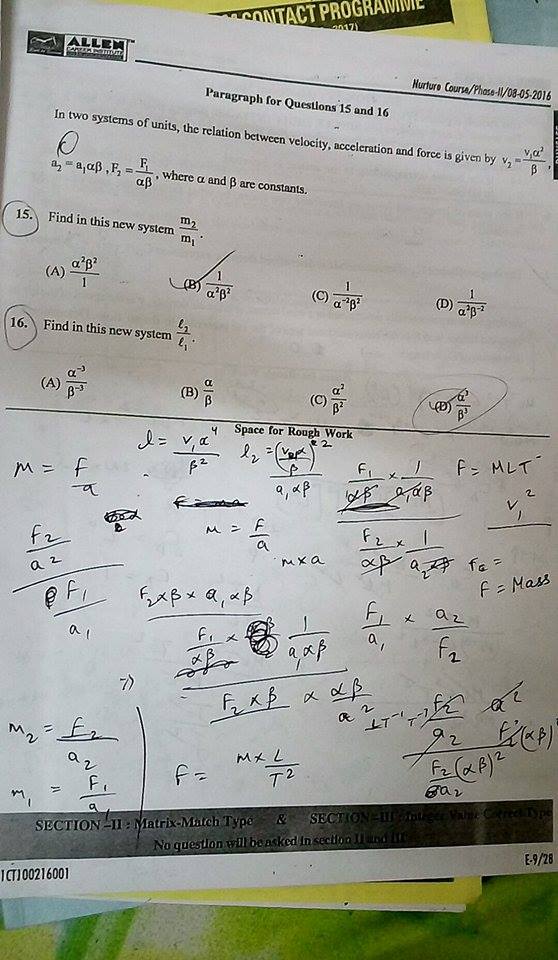 CONTACT PROGRAMME
2017)
ALLEN
CAREER INSTITUTE
Nurture Course/Phase-II/08-05-2016
Paragraph for Questions 15 and 16
In two systems of units, the relation between velocity, acceleration and force is given by v₂ = v₁α²/β,
a₂ = a₁αβ, F₂ = F₁/αβ, where α and β are constants.
15. Find in this new system m₂/m₁.
(A) α²β²/1 (B) 1/α²β² (C) 1/α⁻²β² (D) 1/α²β⁻²
16. Find in this new system ℓ₂/ℓ₁.
(A) α⁻³/β⁻³ (B) α/β (C) α²/β² (D) α³/β³
Space for Rough Work
M = F/a
l = v₁α⁴/β²
l₂ = /a₁αβ
F₁/αβ × 1/a₁αβ
F = MLT⁻
v₁²
F₂/a₂
F₁/a₁
M = F/a
m×a
F₂/αβ × 1/a₂αβ
F = Mass
F₂×β × a₁αβ
F₁/αβ × 1/a₁αβ
F₁/a₁ × a₂/F₂
F₂×β
αβ
m₂ = F₂/a₂
m₁ = F₁/a₁
F = M×L/T²
F₂/a₂
F₂(αβ)²
SECTION–II : Matrix-Match Type & SECTION–III : Integer Value Correct Type
No question will be asked in section II and III
1CT100216001
E-9/28